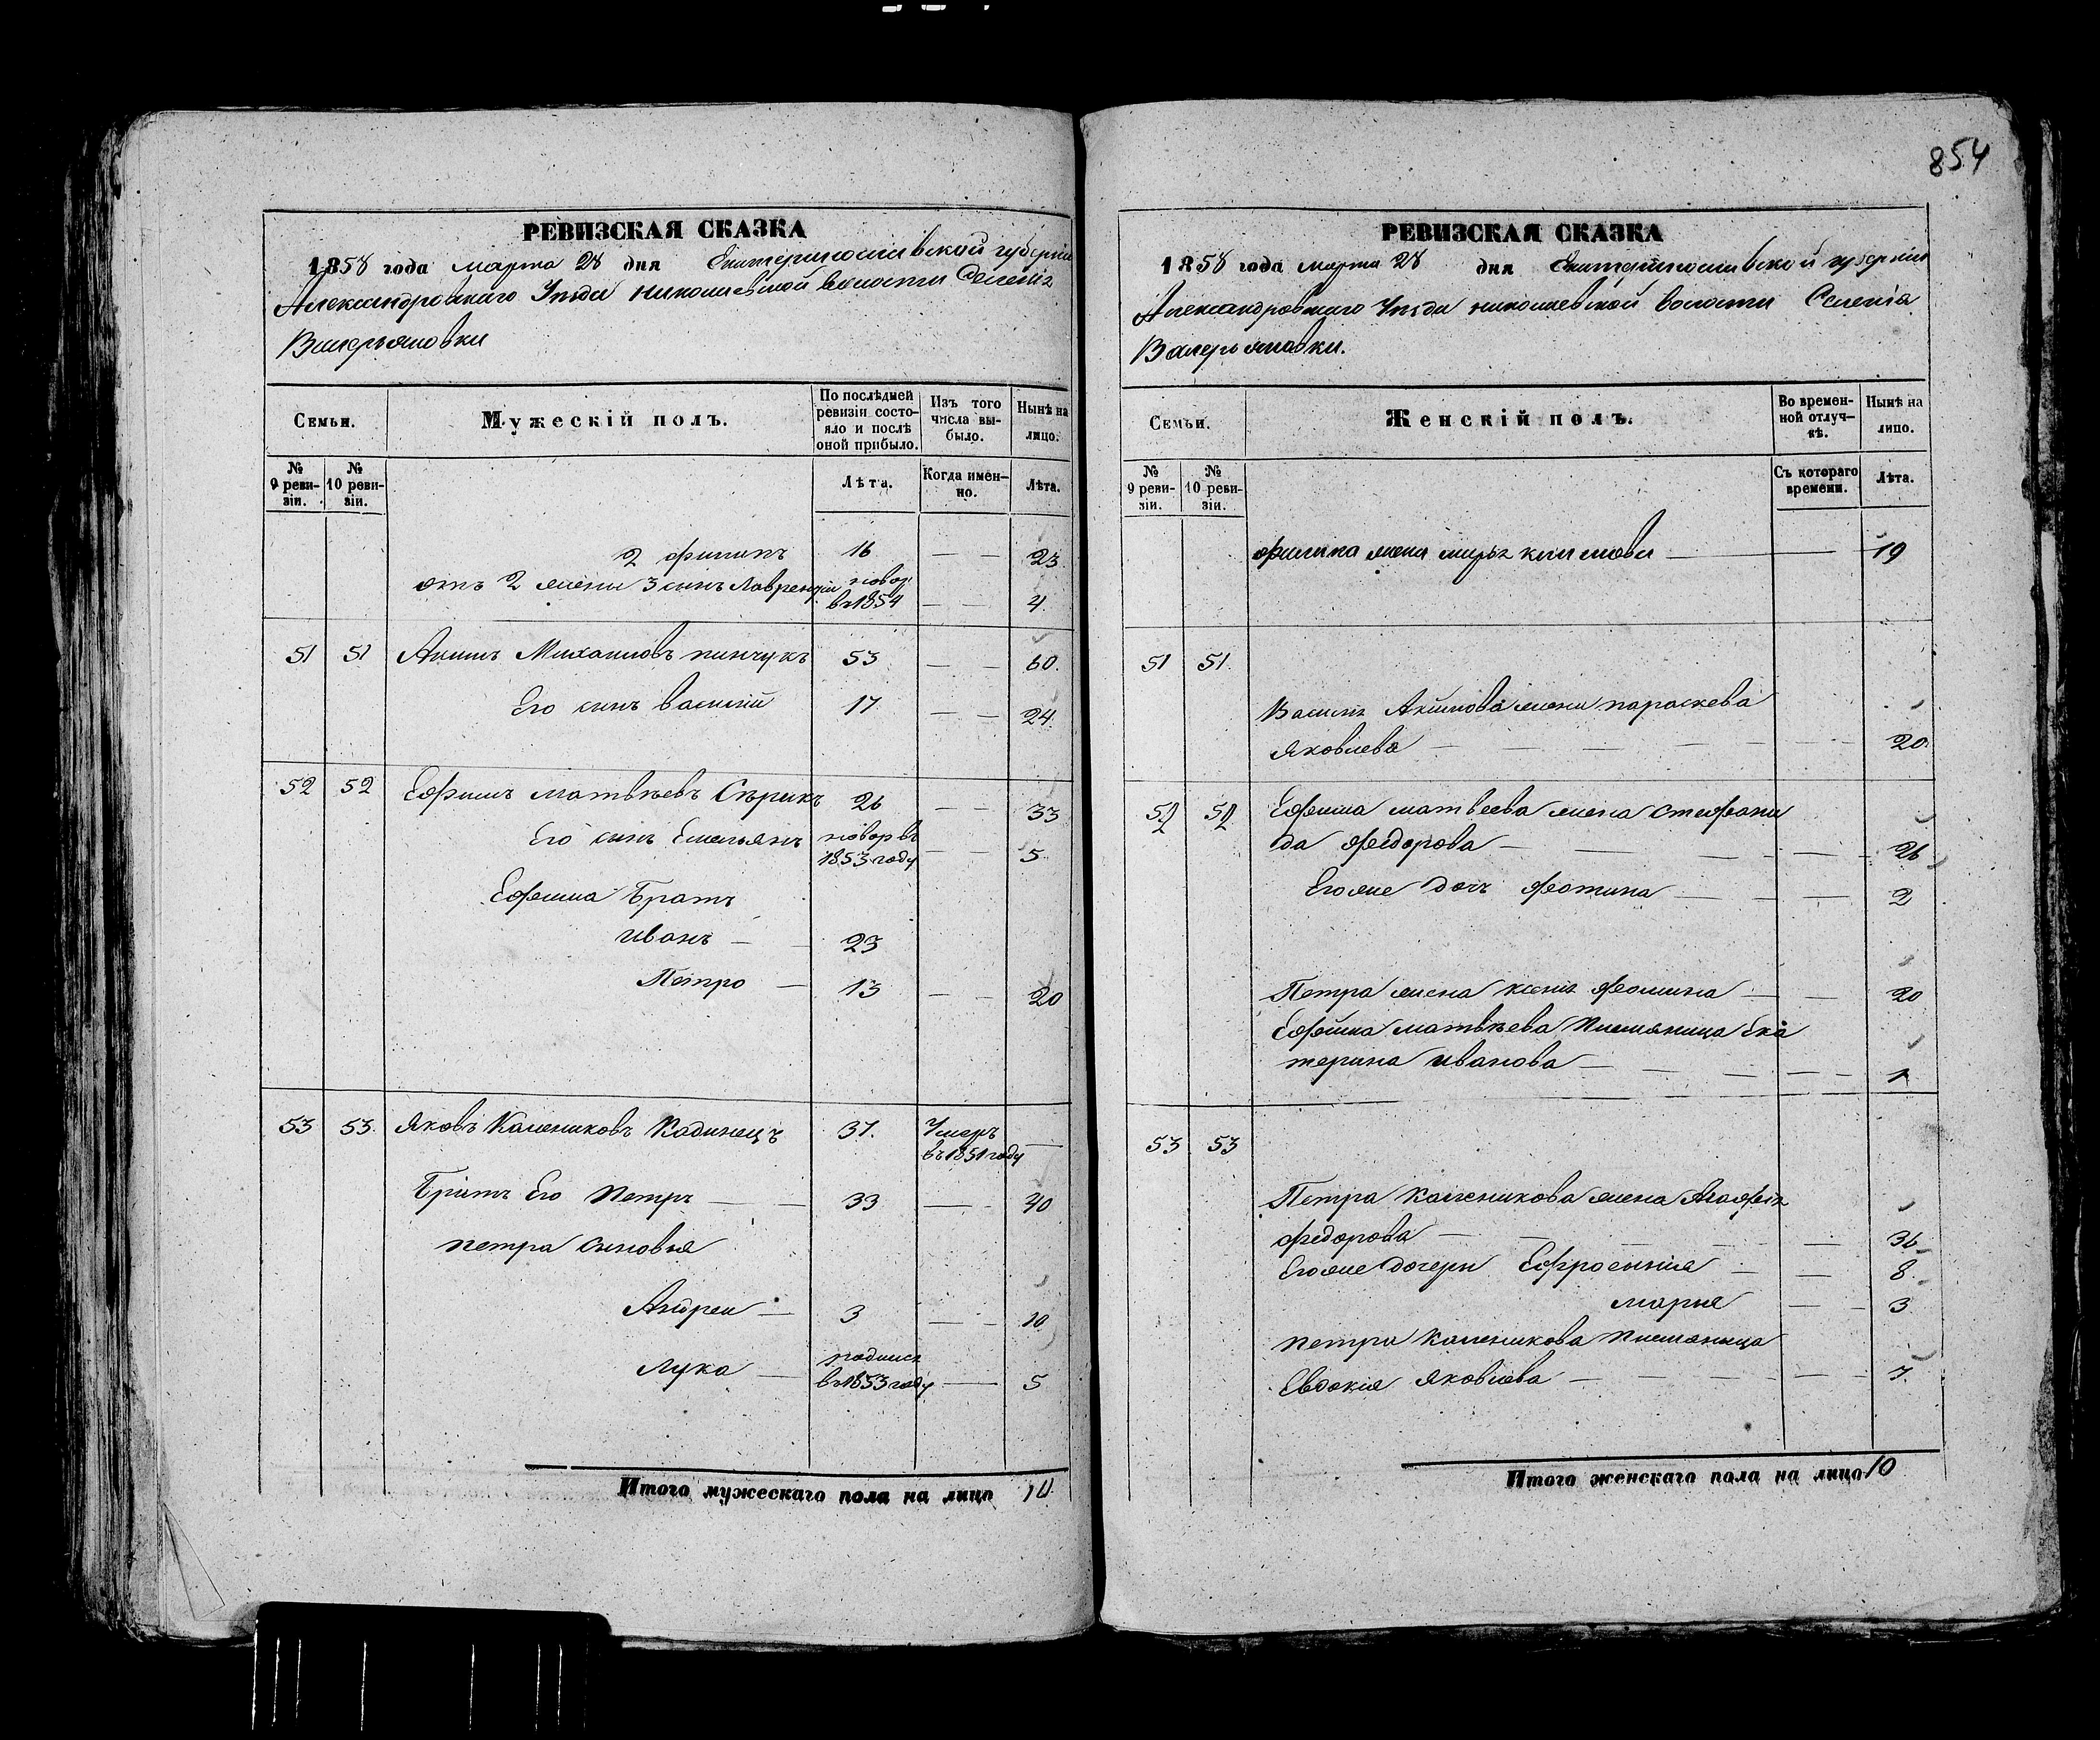 854
РЕВИЗСКАЯ СКАЗКА
1858 года марта 28 дня Екатеринославской губерніи
Александровскаго Уѣзда николаевской волости Селенія
Валерьяновки
Семьи.
Мужескій полъ.
По послѣдней ревизіи состояло и послѣ оной прибыло.
Изъ того числа выбыло.
Нынѣ на лицо.
№ 9 ревизіи.
№ 10 ревизіи.
Лѣта.
Когда именно.
Лѣта.
2 филипъ 16 — — 23
отъ 2 жены 3 сынъ Лаврентій новор. въ 1854 — — 4
51 51 Акимъ Михайловъ пинчукъ 53 — — 60.
Его сынъ василій 17 — — 24.
52 52 Ефимъ матвѣевъ Сѣрикъ 26 — — 33
Его сынъ Емельянъ новор въ 1853 году — — 5
Ефима Братъ
иванъ — — 23
Петро — 13 — — 20
53 53. яковъ Калениковъ Кадинецъ 37. Умеръ въ 1851 году —
Братъ Его Петръ — — 33 — 40
петра сыновья
Андреи — 3 — — 10
лука — родился въ 1853 году — 5
Итого мужескаго пола на лицо 10
РЕВИЗСКАЯ СКАЗКА
1858 года марта 28 дня Екатеринославской губерніи
Александровскаго Уѣзда николаевской волости Селенія
Валерьяновки.
Семьи.
Женскій полъ.
Во временной отлучкѣ.
Нынѣ на лицо.
№ 9 ревизіи.
№ 10 ревизіи.
Съ котораго времени.
Лѣта.
филипа жена марья климова — — 19
51 51.
Василія Акимова жена параскева
яковлева — — — — 20
52 52 Ефима матвеева жена стефани
да федорова — — — — 26
Егоже дочь фотина — — — 2
Петра жена ксенія фомина — — 20
Ефима матвѣева племяница Ека
терина иванова — — — — 1
53 53
Петра каленикова жена Агафія
федорова — — — — 36
Егоже дочери Ефросинія — — 8
марья — — 3
петра каленикова племяница
Евдокія яковлева — — — — 7.
Итого женскаго пола на лицо 10